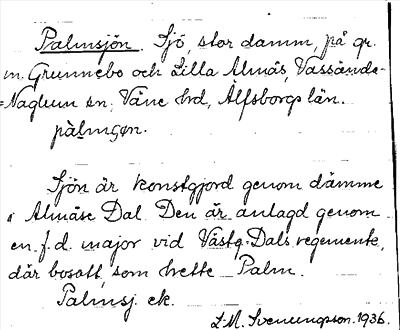 Palmsjön. Sjö, stor damm, på gr.
m. Grunnebo och Lilla Almås, Vassände-
=Naglum sn, Väne hd, Älfsborgs län.
pàlmʃøn.
Sjön är konstgjord genom dämme
i Almåse Dal. Den är anlagd genom
en f.d. major vid Västg.-Dals regemente,
där bosatt, som hette Palm.
Palmsj. ek.
L.M. Svenungson. 1936.